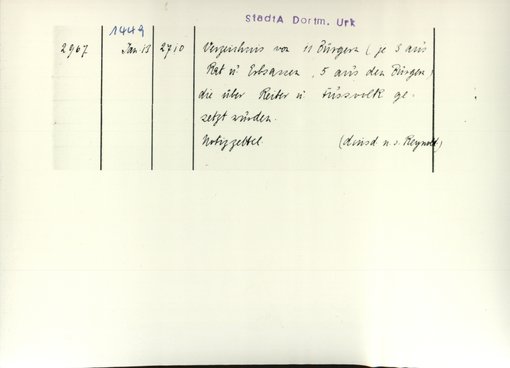 StadtA Dortm. Urk
1449
2967 Jan 13 2710 Verzeichnis von 11 Bürgern (je 3 aus
Rat u Erbsassen, 5 aus den Bürgern)
die über Reiter u Fussvolk ge-
setzt würden.
Notizzettel (durchd u. s. Reynold)